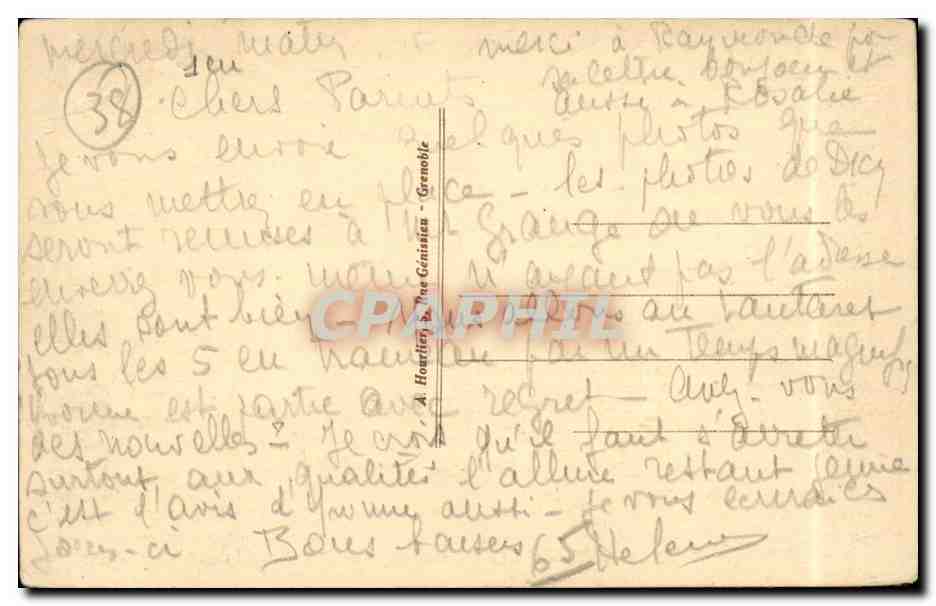 mercredi matin
merci à Raymonde pour
sa lettre bonjour et
aussi à Rosalie
38
Chers Parents
je vous envoie quelques photos que
vous mettrez en place - les photos de Dicy
seront remises à la Grange ou vous les
enverrez vous même n'ayant pas l'adresse
elles sont bien - Nous allons au Lautaret
tous les 5 en par un temps magnifique
Yvonne est partie avec regret - Avez-vous
des nouvelles? - Je crois qu'il faut s'arrêter
surtout aux qualités l'allure restant jeune
c'est l'avis d'Yvonne aussi - je vous écrirai ces
jours-ci Bons baisers Helene
65
A. Hourlier, Rue Génissieu - Grenoble
CPAPHIL